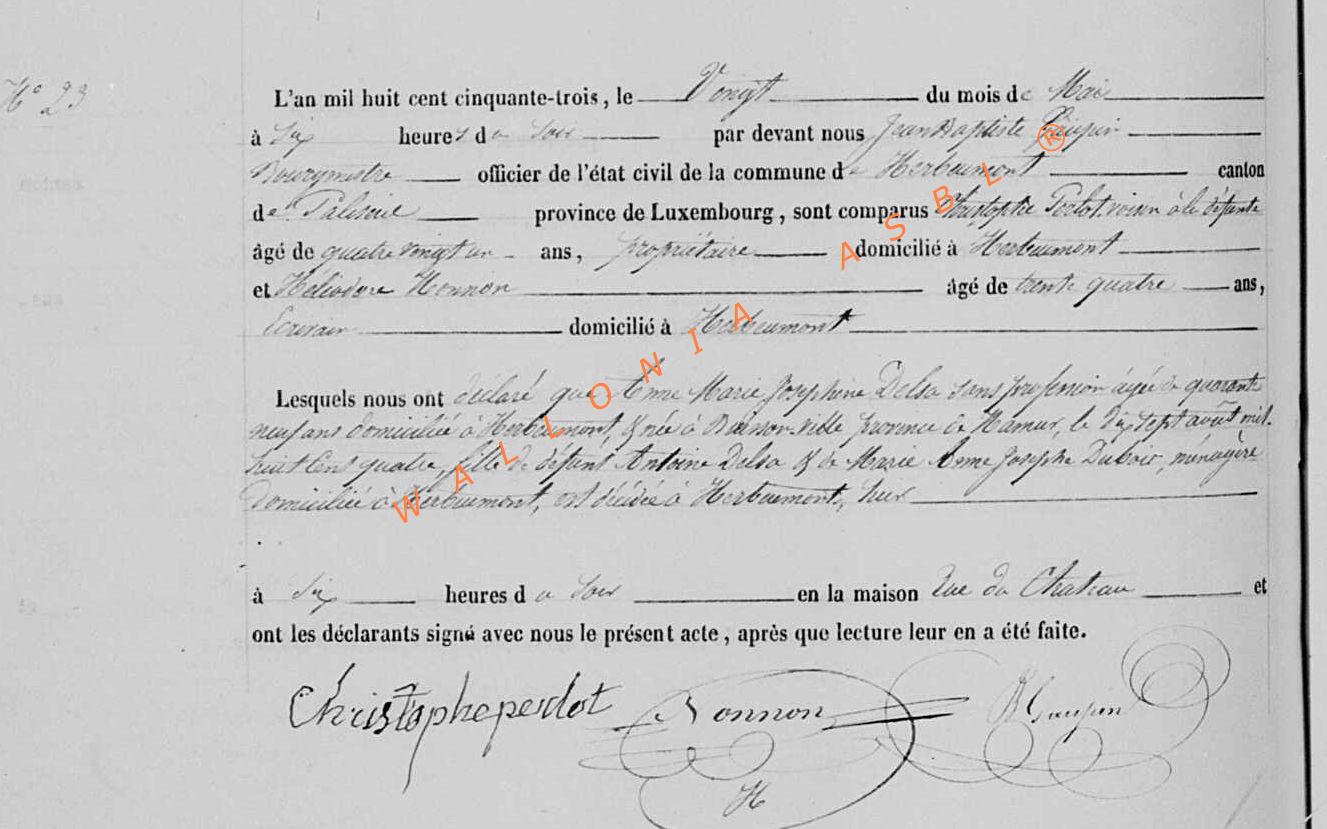 N° 23
L'an mil huit cent cinquante-trois, le Vingt du mois de Mai
à Six heures du Soir par devant nous Jean Baptiste
Bourgmestre officier de l'état civil de la commune de Herbeumont canton
de Paliseul province de Luxembourg, sont comparus Christophe Perlot voisin à la défunte
âgé de quatre vingt un ans, propriétaire domicilié à Herbeumont
et Héliodore Honnon âgé de trente quatre ans,
Ecrivain domicilié à Herbeumont
Lesquels nous ont déclaré que Anne Marie Josephine Delsa sans profession âgée de quarante
neuf ans domiciliée à Herbeumont, & née à Buissonville province de Namur, le dix sept août mil
huit Cent quatre, fille de défunt Antoine Delsa & de Marie Anne Josephe Dubois, ménagère
domiciliée à Herbeumont, est décédée à Herbeumont, hier
à Six heures du Soir en la maison Rue du Chateau et
ont les déclarants signé avec nous le présent acte, après que lecture leur en a été faite.
Christophe perlot Honnon
H
WALLONIA ASBL ®